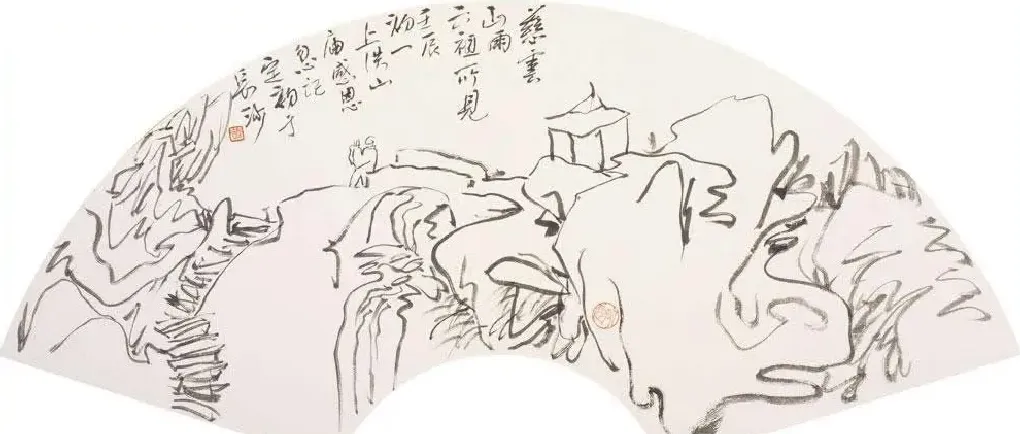 慈雲
山雨
六祖所見
壬辰
初一
上洪山
庙感恩
忽記
定初于
長沙